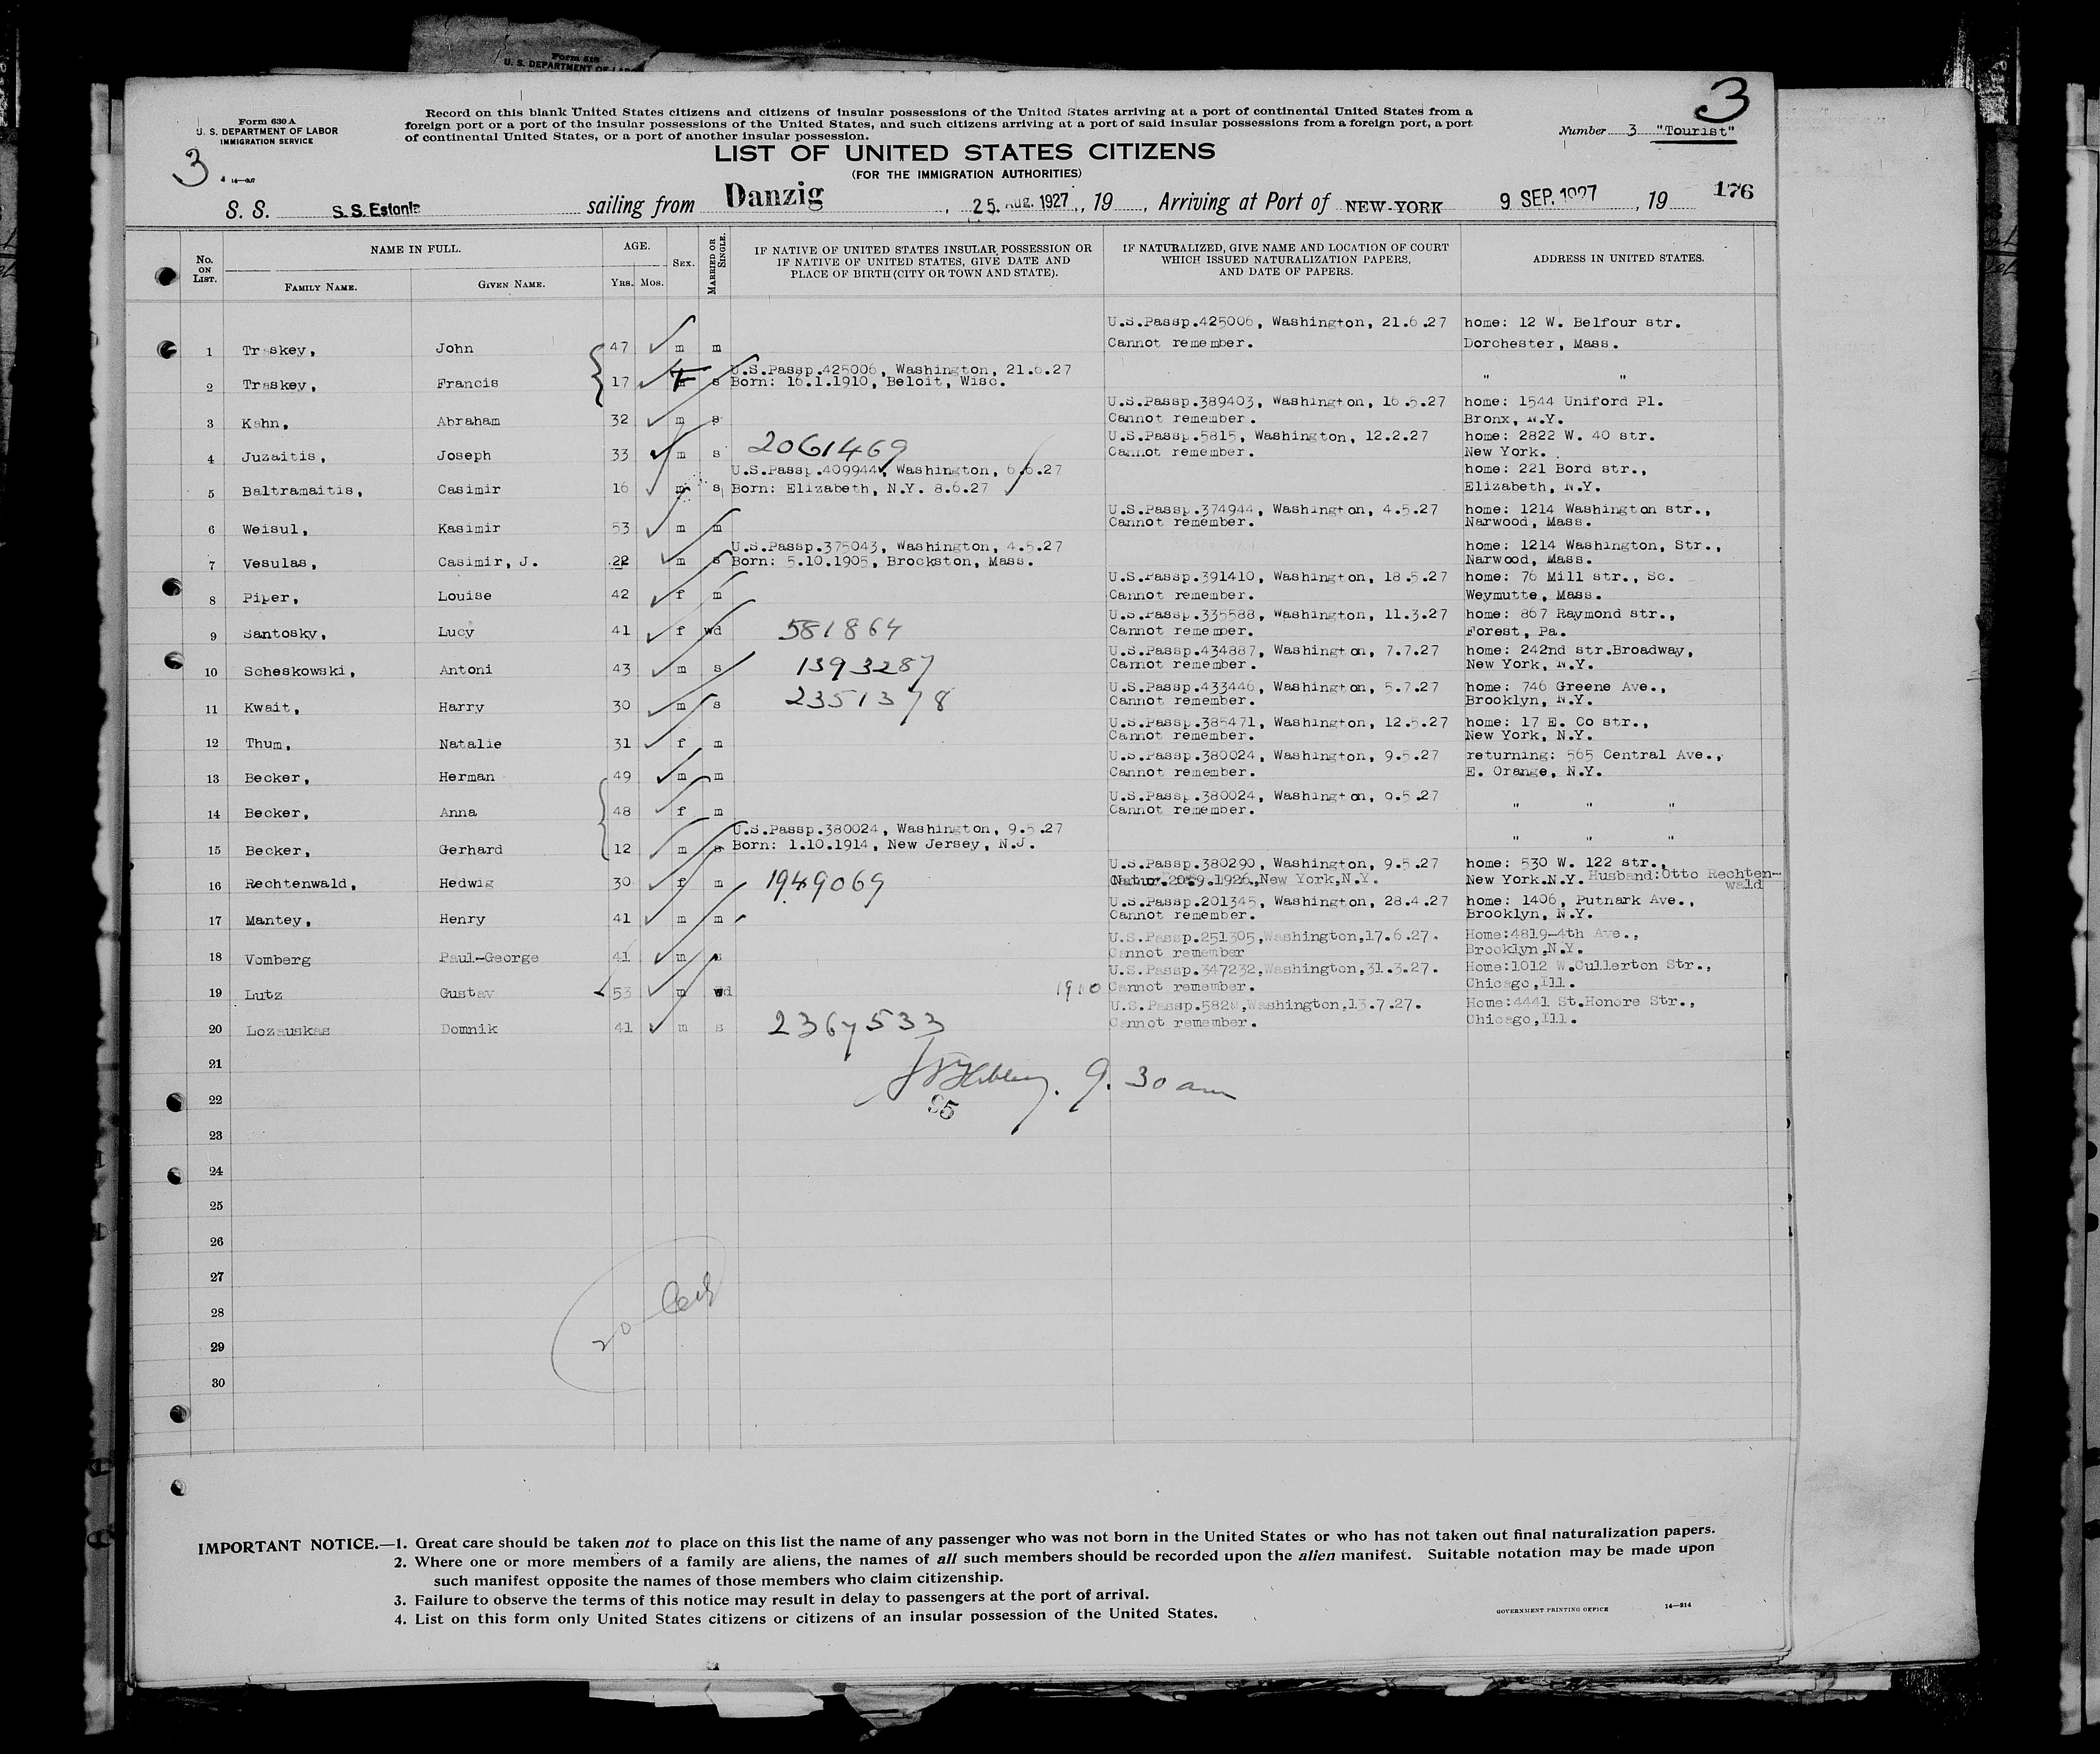 Form 515
U. S. DEPARTMENT OF LA
Form 630 A
U. S. DEPARTMENT OF LABOR
IMMIGRATION SERVICE
Record on this blank United States citizens and citizens of insular possessions of the United States arriving at a port of continental United States from a
foreign port or a port of the insular possessions of the United States, and such citizens arriving at a port of said insular possessions from a foreign port, a port
of continental United States, or a port of another insular possession.
3
Number 3 "Tourist"
3
LIST OF UNITED STATES CITIZENS
(FOR THE IMMIGRATION AUTHORITIES)
S. S. S.S. Estonia sailing from Danzig, 25. Aug. 1927, 19 , Arriving at Port of NEW-YORK 9 SEP. 1927 , 19 176
No. ON LIST. NAME IN FULL. AGE. SEX. MARRIED OR SINGLE. IF NATIVE OF UNITED STATES INSULAR POSSESSION OR IF NATIVE OF UNITED STATES, GIVE DATE AND PLACE OF BIRTH (CITY OR TOWN AND STATE). IF NATURALIZED, GIVE NAME AND LOCATION OF COURT WHICH ISSUED NATURALIZATION PAPERS, AND DATE OF PAPERS. ADDRESS IN UNITED STATES.
FAMILY NAME. GIVEN NAME. YRS. MOS.
U.S.Passp.425006, Washington, 21.6.27 home: 12 W. Belfour str.
1 Traskey, John 47 m m Cannot remember. Dorchester, Mass.
U.S.Passp.425006, Washington, 21.6.27
2 Traskey, Francis 17 F s Born: 16.1.1910, Beloit, Wisc. " "
U.S.Passp.389403, Washington, 16.5.27 home: 1544 Uniford Pl.
3 Kahn, Abraham 32 m s Cannot remember. Bronx, N.Y.
2061469 U.S.Passp.5815, Washington, 12.2.27 home: 2822 W. 40 str.
4 Juzaitis, Joseph 33 m s Cannot remember. New York.
U.S.Passp.409944, Washington, 6.6.27 home: 221 Bord str.,
5 Baltramaitis, Casimir 16 m s Born: Elizabeth, N.Y. 8.6.27 Elizabeth, N.Y.
U.S.Passp.374944, Washington, 4.5.27 home: 1214 Washington str.,
6 Weisul, Kasimir 53 m m Cannot remember. Narwood, Mass.
U.S.Passp.375043, Washington, 4.5.27 home: 1214 Washington, Str.,
7 Vesulas, Casimir, J. 22 m s Born: 5.10.1905, Brockston, Mass. Narwood, Mass.
U.S.Passp.391410, Washington, 18.5.27 home: 76 Mill str., Sc.
8 Piper, Louise 42 f m Cannot remember. Weymutte, Mass.
U.S.Passp.335588, Washington, 11.3.27 home: 867 Raymond str.,
9 Santosky, Lucy 41 f wd 581864 Cannot remember. Forest, Pa.
U.S.Passp.434887, Washington, 7.7.27 home: 242nd str.Broadway,
10 Scheskowski, Antoni 43 m s 1393287 Cannot remember. New York, N.Y.
U.S.Passp.433446, Washington, 5.7.27 home: 746 Greene Ave.,
11 Kwait, Harry 30 m s 2351378 Cannot remember. Brooklyn, N.Y.
U.S.Passp.385471, Washington, 12.5.27 home: 17 E. Co str.,
12 Thum, Natalie 31 f m Cannot remember. New York, N.Y.
U.S.Passp.380024, Washington, 9.5.27 returning: 565 Central Ave.,
13 Becker, Herman 49 m m Cannot remember. E. Orange, N.Y.
U.S.Passp.380024, Washington, 9.5.27
14 Becker, Anna 48 f m Cannot remember. " " "
U.S.Passp.380024, Washington, 9.5.27
15 Becker, Gerhard 12 m s Born: 1.10.1914, New Jersey, N.J. " " "
U.S.Passp.380290, Washington, 9.5.27 home: 530 W. 122 str.,
16 Rechtenwald, Hedwig 30 f m 1949069 Natur. 20.9.1926.,New York,N.Y. New York.N.Y. Husband:Otto Rechten-
wald
U.S.Passp.201345, Washington, 28.4.27 home: 1406, Putnark Ave.,
17 Mantey, Henry 41 m m Cannot remember. Brooklyn, N.Y.
U.S.Passp.251305,Washington,17.6.27. Home:4819-4th Ave.,
18 Vomberg Paul-George 41 m s Cannot remember Brooklyn,N.Y.
U.S.Passp.347232,Washington,31.3.27. Home:1012 W.Cullerton Str.,
19 Lutz Gustav 53 m wd 1910 Cannot remember. Chicago,Ill.
U.S.Passp.5828,Washington,13.7.27. Home:4441 St.Honore Str.,
20 Lozauskas Domnik 41 m s 2367533 Cannot remember. Chicago,Ill.
21
9.30 am
22
95
23
24
25
26
27
28
20
29
30
IMPORTANT NOTICE.—1. Great care should be taken not to place on this list the name of any passenger who was not born in the United States or who has not taken out final naturalization papers.
2. Where one or more members of a family are aliens, the names of all such members should be recorded upon the alien manifest. Suitable notation may be made upon
such manifest opposite the names of those members who claim citizenship.
3. Failure to observe the terms of this notice may result in delay to passengers at the port of arrival.
4. List on this form only United States citizens or citizens of an insular possession of the United States.
GOVERNMENT PRINTING OFFICE 14—914